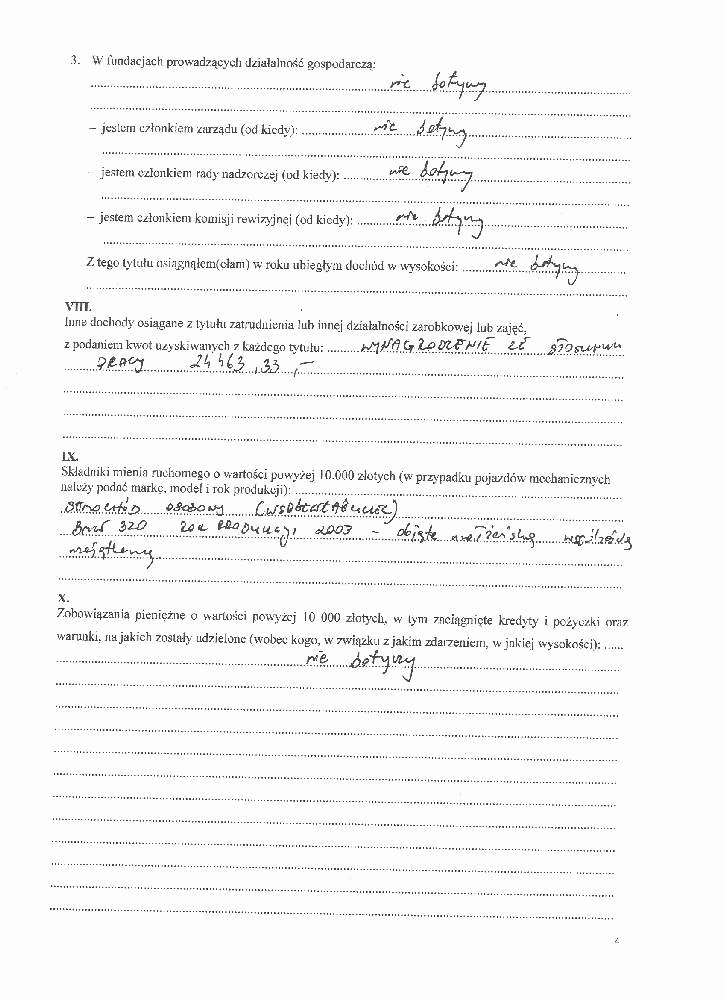 3. W fundacjach prowadzących działalność gospodarczą:
nie dotyczy
– jestem członkiem zarządu (od kiedy): nie dotyczy
– jestem członkiem rady nadzorczej (od kiedy): nie dotyczy
– jestem członkiem komisji rewizyjnej (od kiedy): nie dotyczy
Z tego tytułu osiągnąłem(ęłam) w roku ubiegłym dochód w wysokości: nie dotyczy
VIII.
Inne dochody osiągane z tytułu zatrudnienia lub innej działalności zarobkowej lub zajęć,
z podaniem kwot uzyskiwanych z każdego tytułu: WYNAGRODZENIE ZE STOSUNKU
PRACY 24 463,33,-
IX.
Składniki mienia ruchomego o wartości powyżej 10.000 złotych (w przypadku pojazdów mechanicznych
należy podać markę, model i rok produkcji):
SAMOCHÓD OSOBOWY (WSPÓŁWŁASNOŚĆ)
BMW 320 ROK PRODUKCJI 2003 – objęte małżeńską wspólnością
majątkową
X.
Zobowiązania pieniężne o wartości powyżej 10 000 złotych, w tym zaciągnięte kredyty i pożyczki oraz
warunki, na jakich zostały udzielone (wobec kogo, w związku z jakim zdarzeniem, w jakiej wysokości): ......
nie dotyczy
4